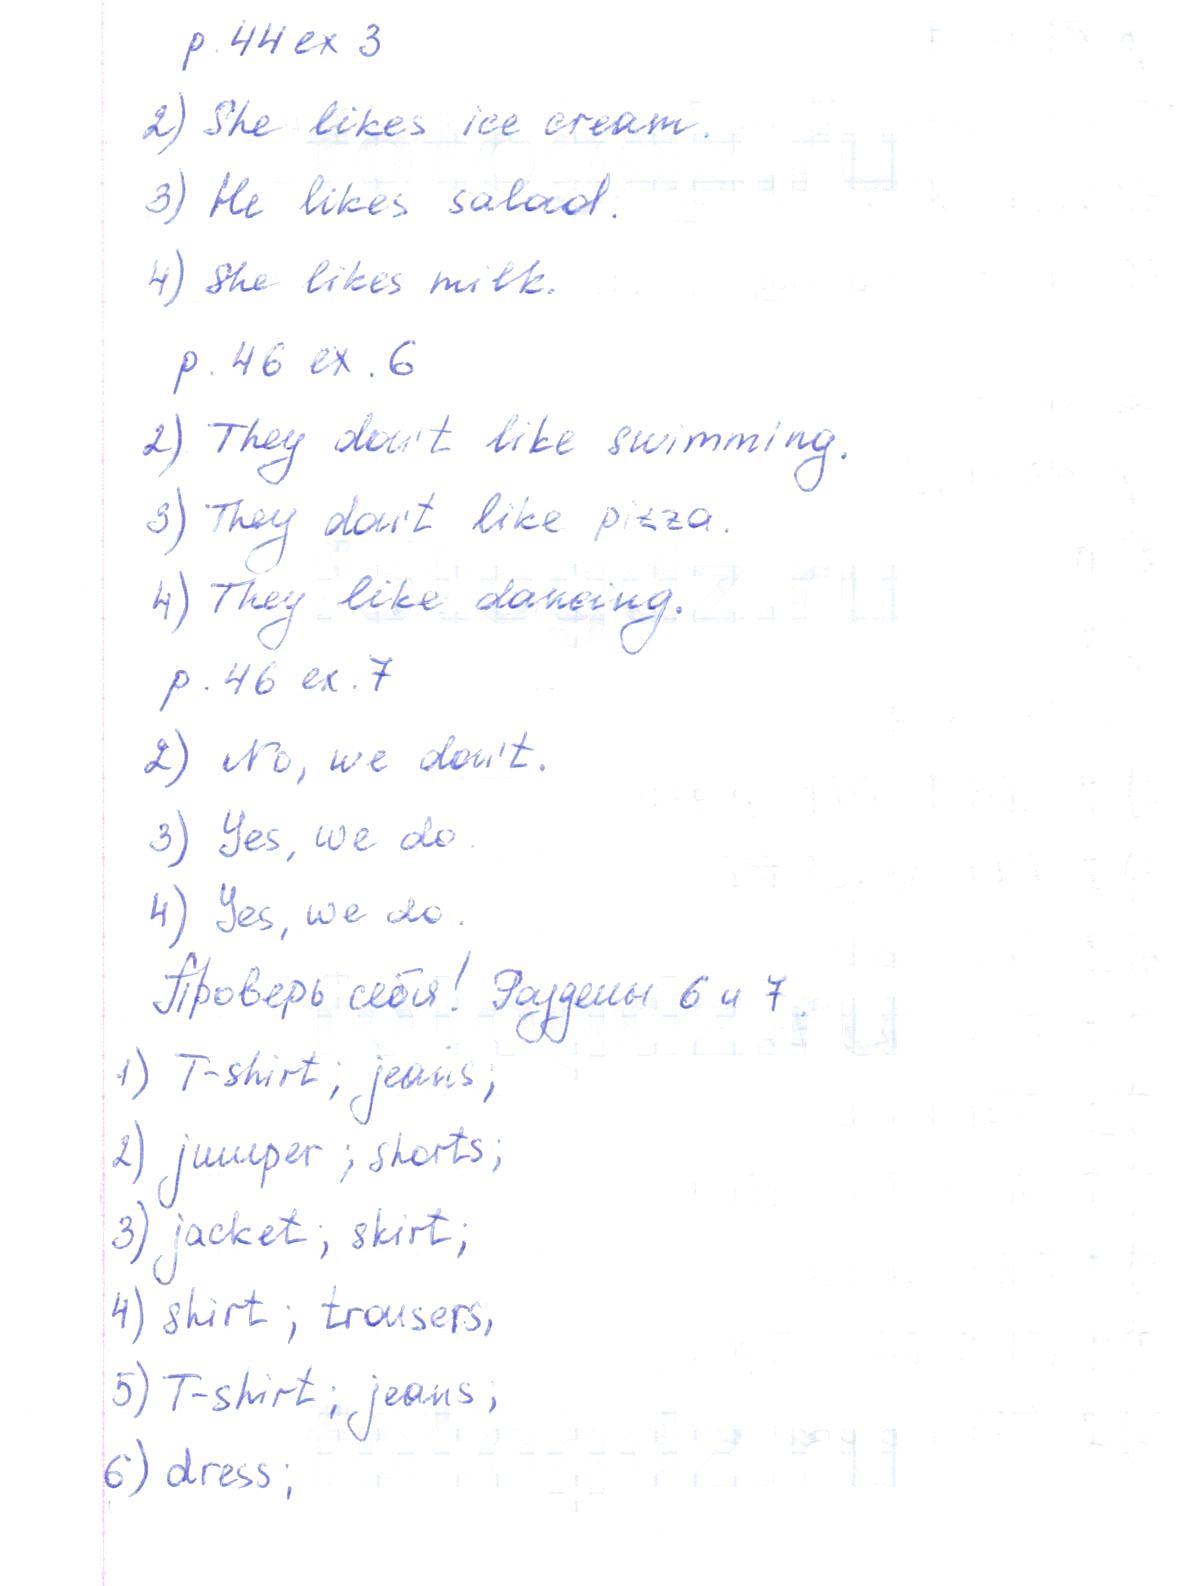 p. 44 ex 3
2) She likes ice cream.
3) He likes salad.
4) She likes milk.
p. 46 ex. 6
2) They don't like swimming.
3) They don't like pizza.
4) They like dancing.
p. 46 ex. 7
2) No, we don't.
3) Yes, we do.
4) Yes, we do.
Проверь себя! Разделы 6 и 7.
1) T-shirt; jeans;
2) jumper; shorts;
3) jacket; skirt;
4) shirt; trousers,
5) T-shirt; jeans;
6) dress;